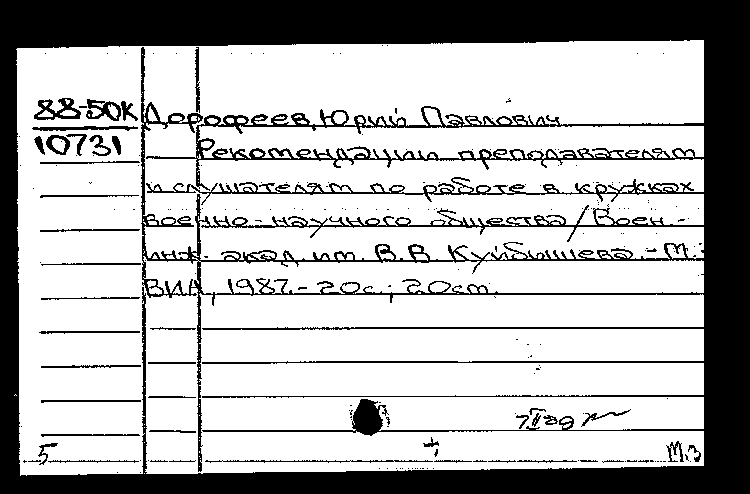 88-50К Дорофеев, Юрий Павлович
10731 Рекомендации преподавателям
и слушателям по работе в кружках
военно-научного общества / Воен.-
инж. акад. им. В.В. Куйбышева. - М.:
ВИА, 1987. - 20с.; 20см.
5 + М.З